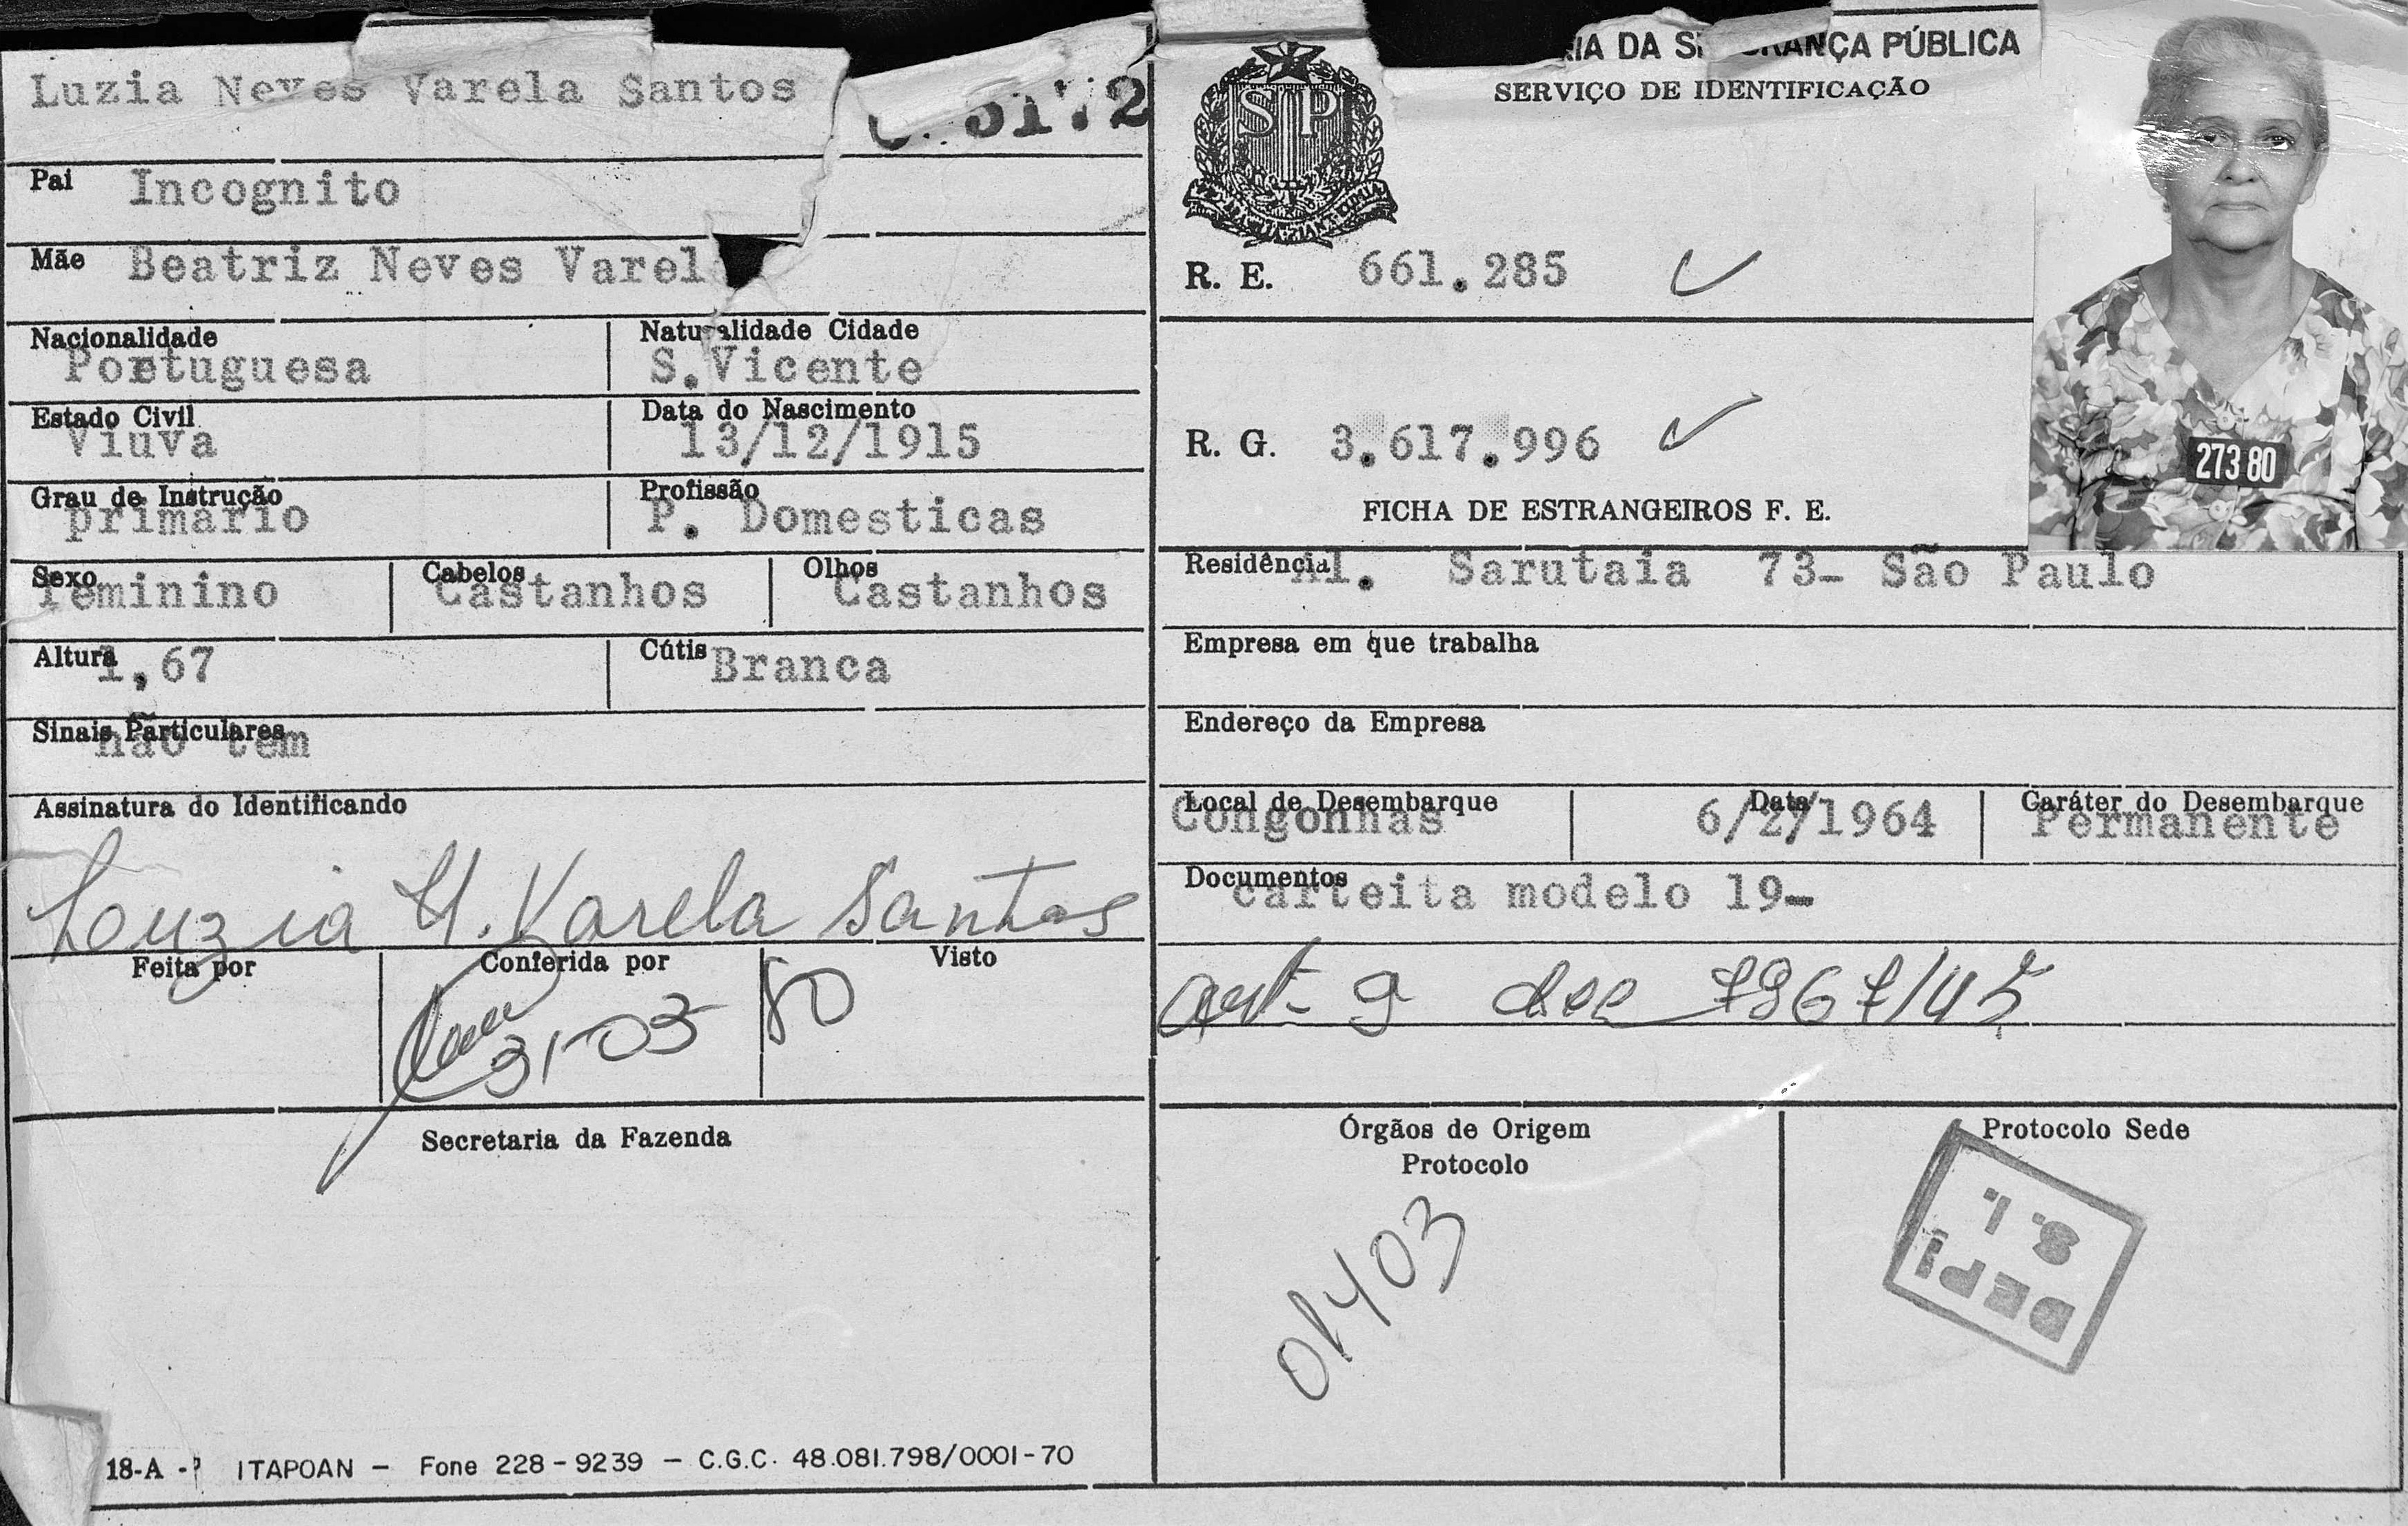 Luzia Neves Varela Santos
5172
Pai Incognito
Mãe Beatriz Neves Varel
Nacionalidade Naturalidade Cidade
Portuguesa S.Vicente
Estado Civil Data do Nascimento
Viuva 13/12/1915
Grau de Instrução Profissão
primario P. Domesticas
Sexo Cabelos Olhos
feminino Castanhos Castanhos
Altura 1,67 Cútis Branca
Sinais Particulares
não tem
Assinatura do Identificando
Louzia N. Varela Santos
Feita por Conferida por Visto
31-03 80
Secretaria da Fazenda
18-A - ITAPOAN - Fone 228-9239 - C.G.C. 48.081.798/0001-70
IA DA SEGURANÇA PÚBLICA
SERVIÇO DE IDENTIFICAÇÃO
SP
R. E. 661.285
R. G. 3.617.996
FICHA DE ESTRANGEIROS F. E.
273 80
Residência Al. Sarutaia 73- São Paulo
Empresa em que trabalha
Endereço da Empresa
Local de Desembarque Data Caráter do Desembarque
Congonhas 6/2/1964 Permanente
Documentos
carteita modelo 19-
art- 9 dec 7967/45
Órgãos de Origem Protocolo Sede
Protocolo
01403
S.I.
DEPI